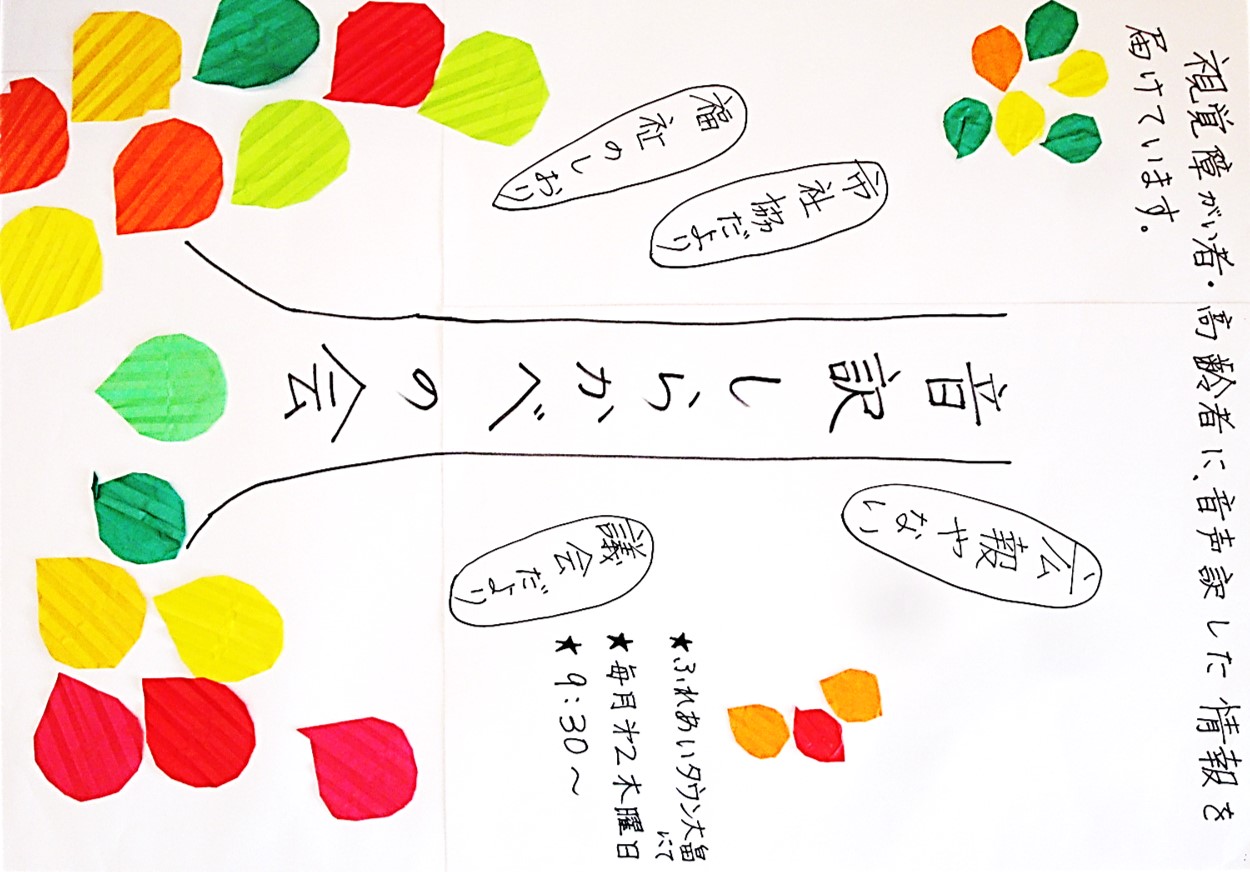 視覚障がい者・高齢者に、音声訳した情報を
届けています。
福祉のしおり
市社協だより
音訳しらかべの会
広報やない
議会だより
★ふれあいタウン大畠にて
★毎月第2木曜日
★9:30～